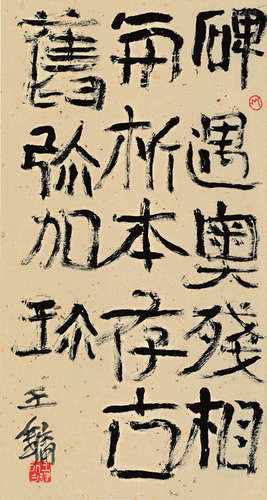 碑遇奥殘相
每析本存古
舊弥加珍
王鏞